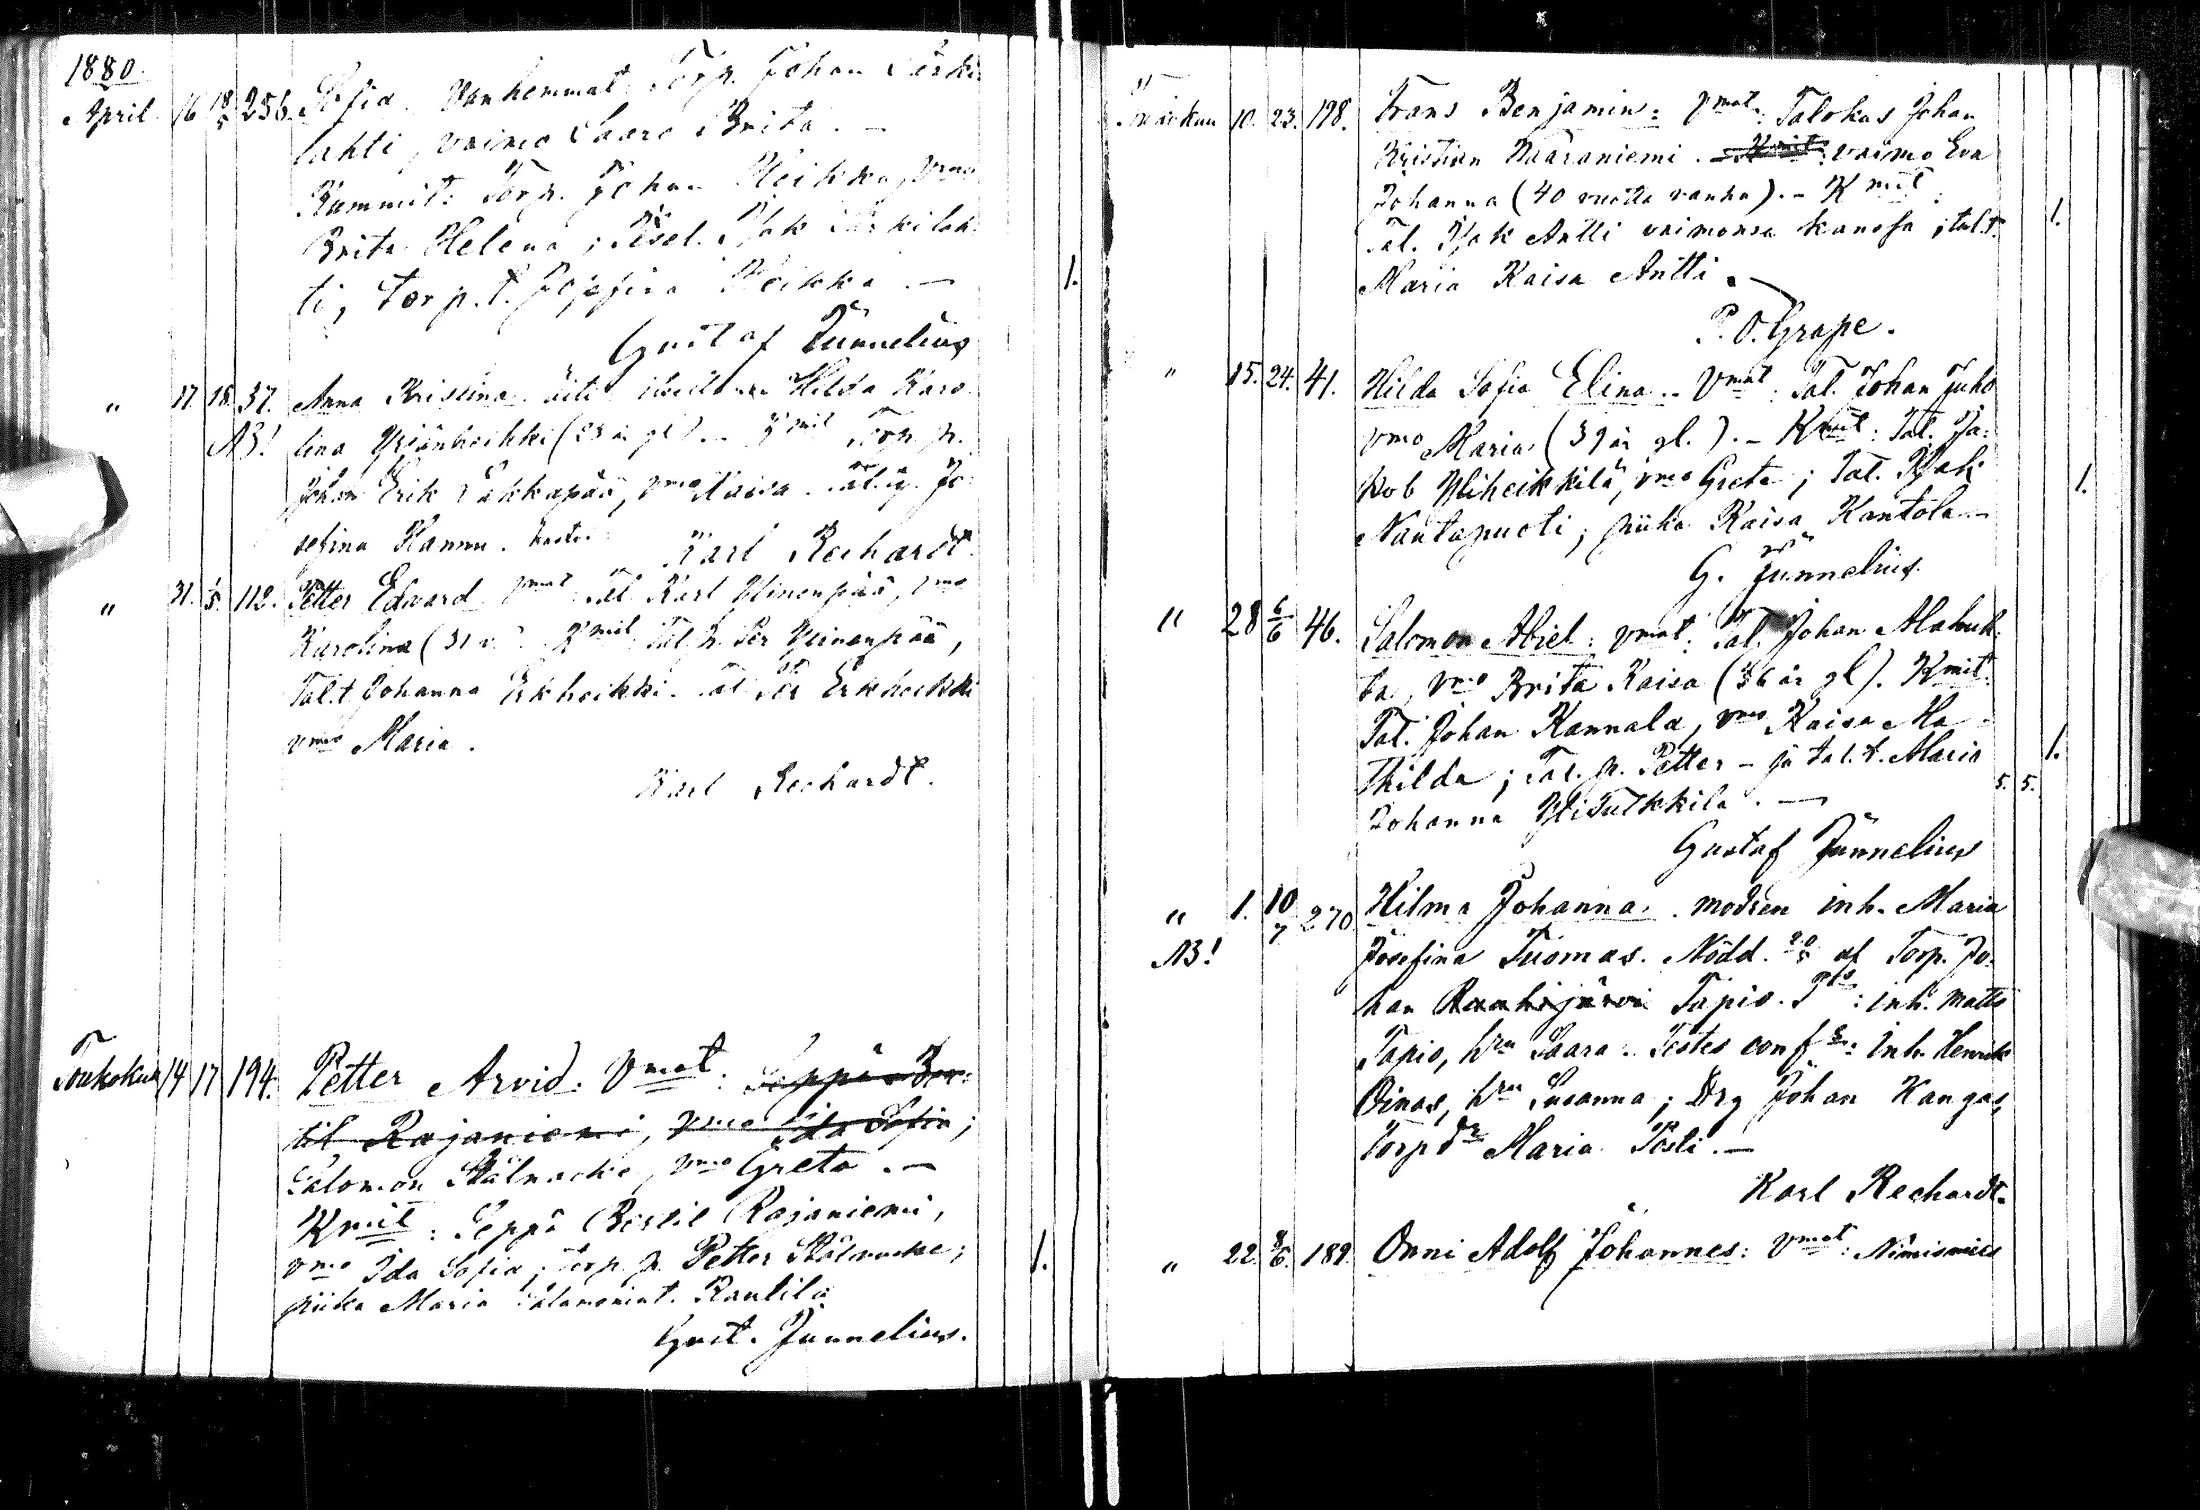 1880.
April 16 18/5 256. Sofia. Vanhemmat: Torp. Johan Särki-
lahti, vaimo Saara Brita. —
Kummit: Torp. Johan Heikka, vmo
Brita Helena; Itsel. Isak Särkilah-
ti, torp. t. Josefina Heikka. — 1.
Gustaf Junnelius
" 17. 18. 37. Anna Kristina. äiti itsellinen Hilda Karo-
NB! lina Yrjänheikki (23 år gl). — Kmit Torp. p.
Johan Erik Lakkapää, vmo Kaisa. Jo-
sefina Hannu.
Karl Rechardt.
" 21. 5. 112. Petter Edvard Vmat Tal Karl Ylinenpää, vmo
Karolina (31 v. Kmit Tal. p. Per Ylinenpää,
Tal. t Johanna Erkheikki. Tal Per Erkheikki
vmo Maria.
Karl Rechardt.
Toukokuu 14 17 194. Petter Arvid: Vmat: Seppä Ber-
til Rajaniemi, vmo Ida Sofia;
Salomon Stålnacke, vmo Greta. —
Kmit: Seppä Bertil Rajaniemi,
vmo Ida Sofia; Torp. p. Petter Stålnacke; 1.
piika Maria Salamonint. Rautila
Gust. Junnelius.
Toukokuu 10. 23. 198. Frans Benjamin: Vmat: Talokas Johan
Kristian Vaaraniemi. Kmit: vaimo Eva
Johanna (40 vuotta vanha). — Kmit:
Tal. Isak Antti vaimonsa kanssa; tal. t. 1.
Maria Kaisa Antti. —
P. O. Grape.
" 15. 24. 41. Hilda Sofia Elina.. Vmat: Tal. Johan Juho
vmo Maria (39 år gl.). — Kmit: Tal. Ja-
kob Yliheikkilä, vmo Greta; Tal. Isak 1.
Nautapuoti; piika Kaisa Kantola —
G. Junnelius.
" 28 6/6 46. Salomon Abiel: vmat: Tal. Johan Alaluuk-
ta, vmo Brita Kaisa (36 år gl). Kmit:
Tal. Johan Kannala, vmo Kaisa Ma-
thilda; Tal. p. Petter — ja tal. t. Maria 1.
Johanna YliTulkkila. — 5. 5.
Gustaf Junnelius
" 1. 10/7 270 Hilma Johanna. modren inh. Maria
NB! Josefina Tuomas. Nödd. af Torp. Jo-
han Rauhijärvi Tapio. Tts: inh. Matts
Tapio, hru Saara. Testes conf.: Inh. Henrik
Oinas, hru Susanna; Drg Johan Kangas,
Torp dr Maria Posti. —
Karl Rechardt.
" 22. 8/6. 189. Onni Adolf Johannes: Vmat: Nimismies